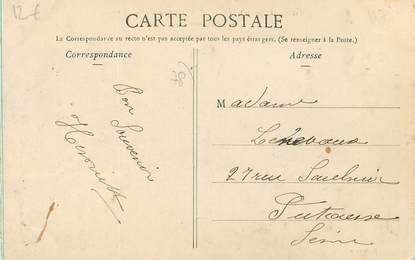 12 €
CARTE POSTALE
La Correspondance au recto n'est pas acceptée par tous les pays étrangers. (Se renseigner à la Poste.)
Correspondance
Adresse
Bon
Souvenir
Madame
27 rue Saulnier
Puteaux
Seine